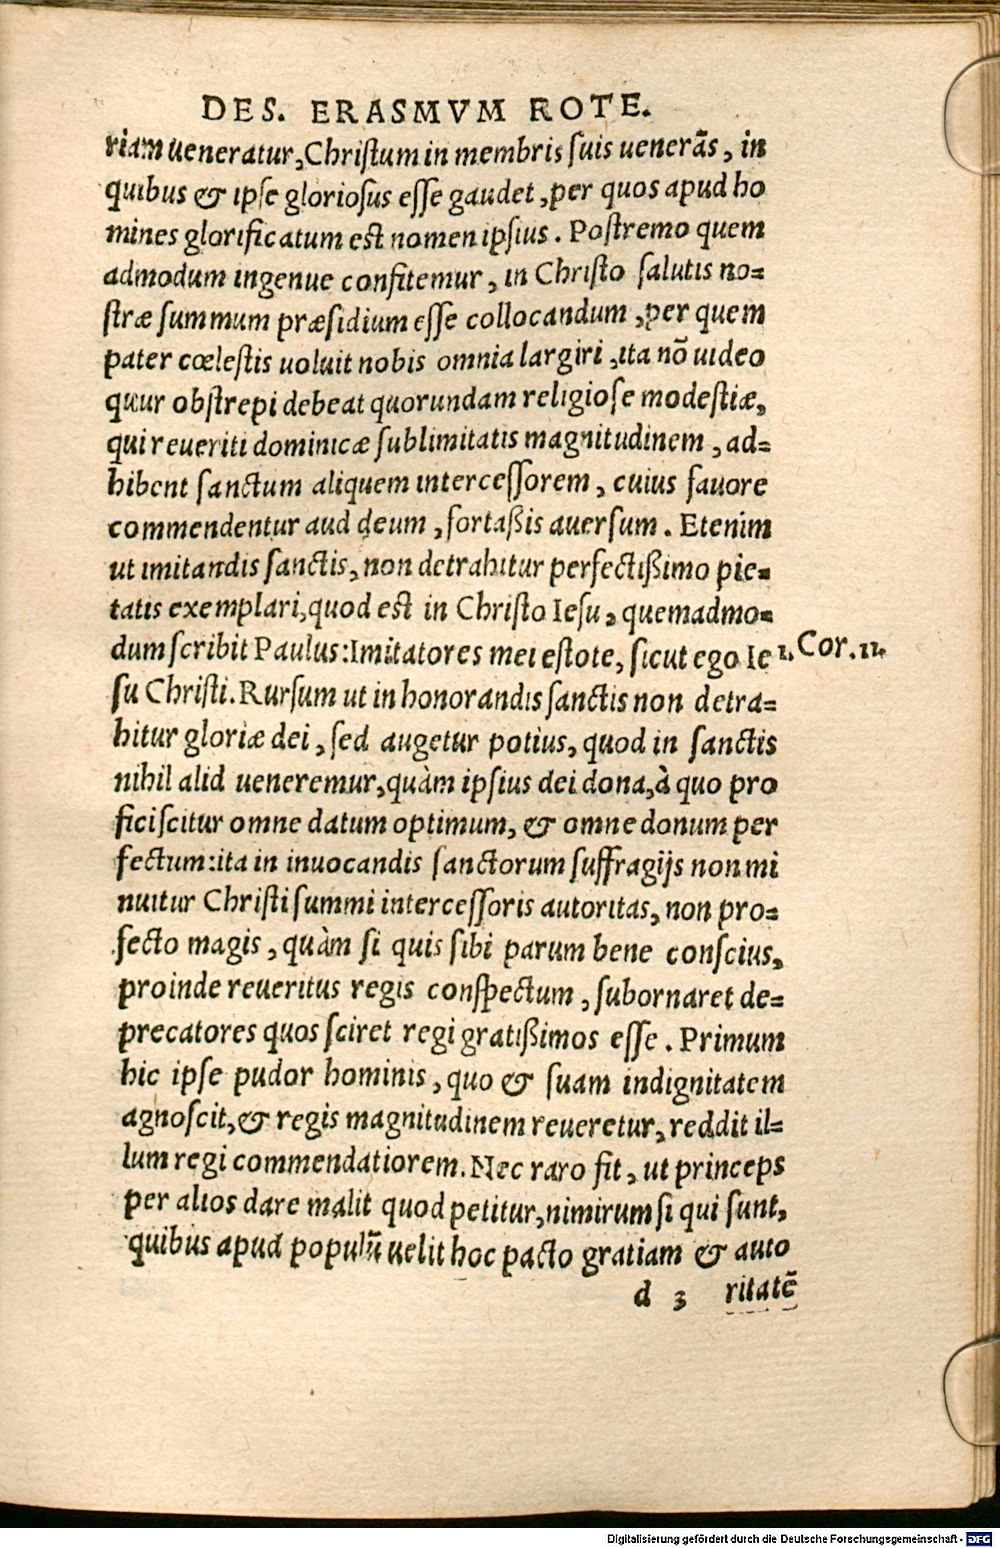 DES. ERASMVM ROTE.
riam ueneratur, Christum in membris suis uenerãs, in
quibus & ipse gloriosus esse gaudet, per quos apud ho
mines glorificatum est nomen ipsius. Postremo quem
admodum ingenue confitemur, in Christo salutis no=
stræ summum præsidium esse collocandum, per quem
pater cœlestis uoluit nobis omnia largiri, ita nõ uideo
quur obstrepi debeat quorundam religiose modestiæ,
qui reueriti dominicæ sublimitatis magnitudinem, ad=
hibent sanctum aliquem intercessorem, cuius fauore
commendentur aud deum, fortaßis auersum. Etenim
ut imitandis sanctis, non detrahitur perfectißimo pie=
tatis exemplari, quod est in Christo Iesu, quemadmo=
dum scribit Paulus: Imitatores mei estote, sicut ego Ie 1. Cor. 11.
su Christi. Rursum ut in honorandis sanctis non detra=
hitur gloriæ dei, sed augetur potius, quod in sanctis
nihil alid ueneremur, quàm ipsius dei dona, à quo pro
ficiscitur omne datum optimum, & omne donum per
fectum: ita in inuocandis sanctorum suffragijs non mi
nuitur Christi summi intercessoris autoritas, non pro=
fecto magis, quàm si quis sibi parum bene conscius,
proinde reueritus regis conspectum, subornaret de=
precatores quos sciret regi gratißimos esse. Primum
hic ipse pudor hominis, quo & suam indignitatem
agnoscit, & regis magnitudinem reueretur, reddit il=
lum regi commendatiorem. Nec raro fit, ut princeps
per alios dare malit quod petitur, nimirum si qui sunt,
quibus apud populũ uelit hoc pacto gratiam & auto
d 3 ritatẽ
Digitalisierung gefördert durch die Deutsche Forschungsgemeinschaft - DFG